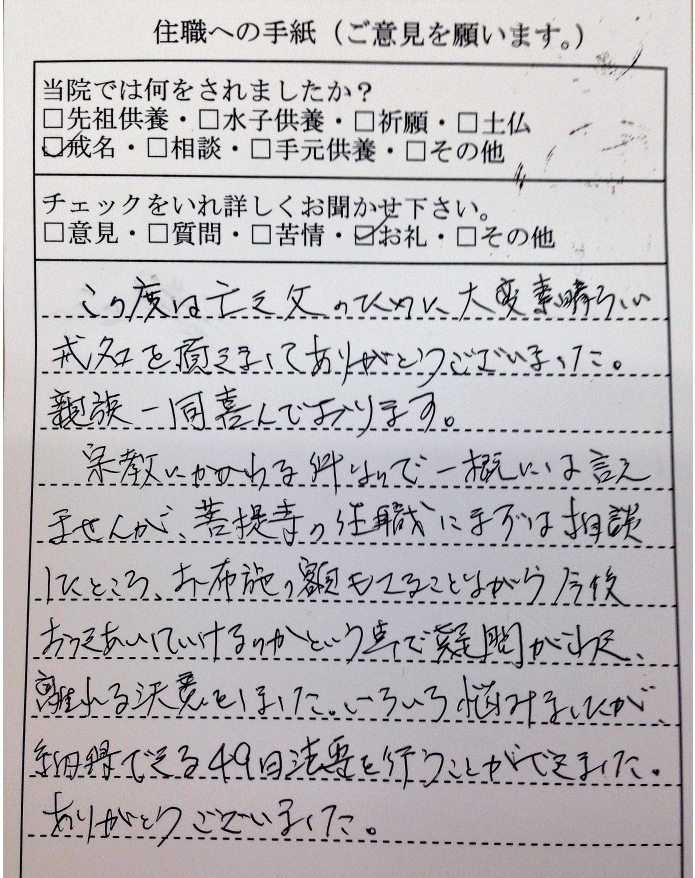 住職への手紙（ご意見を願います。）
当院では何をされましたか？
□先祖供養・□水子供養・□祈願・□土仏
☑戒名・□相談・□手元供養・□その他
チェックをいれ詳しくお聞かせ下さい。
□意見・□質問・□苦情・☑お礼・□その他
この度は亡き父のために大変素晴らしい
戒名を頂きましてありがとうございました。
親族一同喜んでおります。
宗教にかかわる件なので一概には言え
ませんが、菩提寺の住職にまずは相談
したところ、お布施の額もさることながら今後
おつきあいしていけるのかという事で疑問がわき、
離れる決意をしました。いろいろ悩みましたが、
納得できる49日法要を行うことができました。
ありがとうございました。